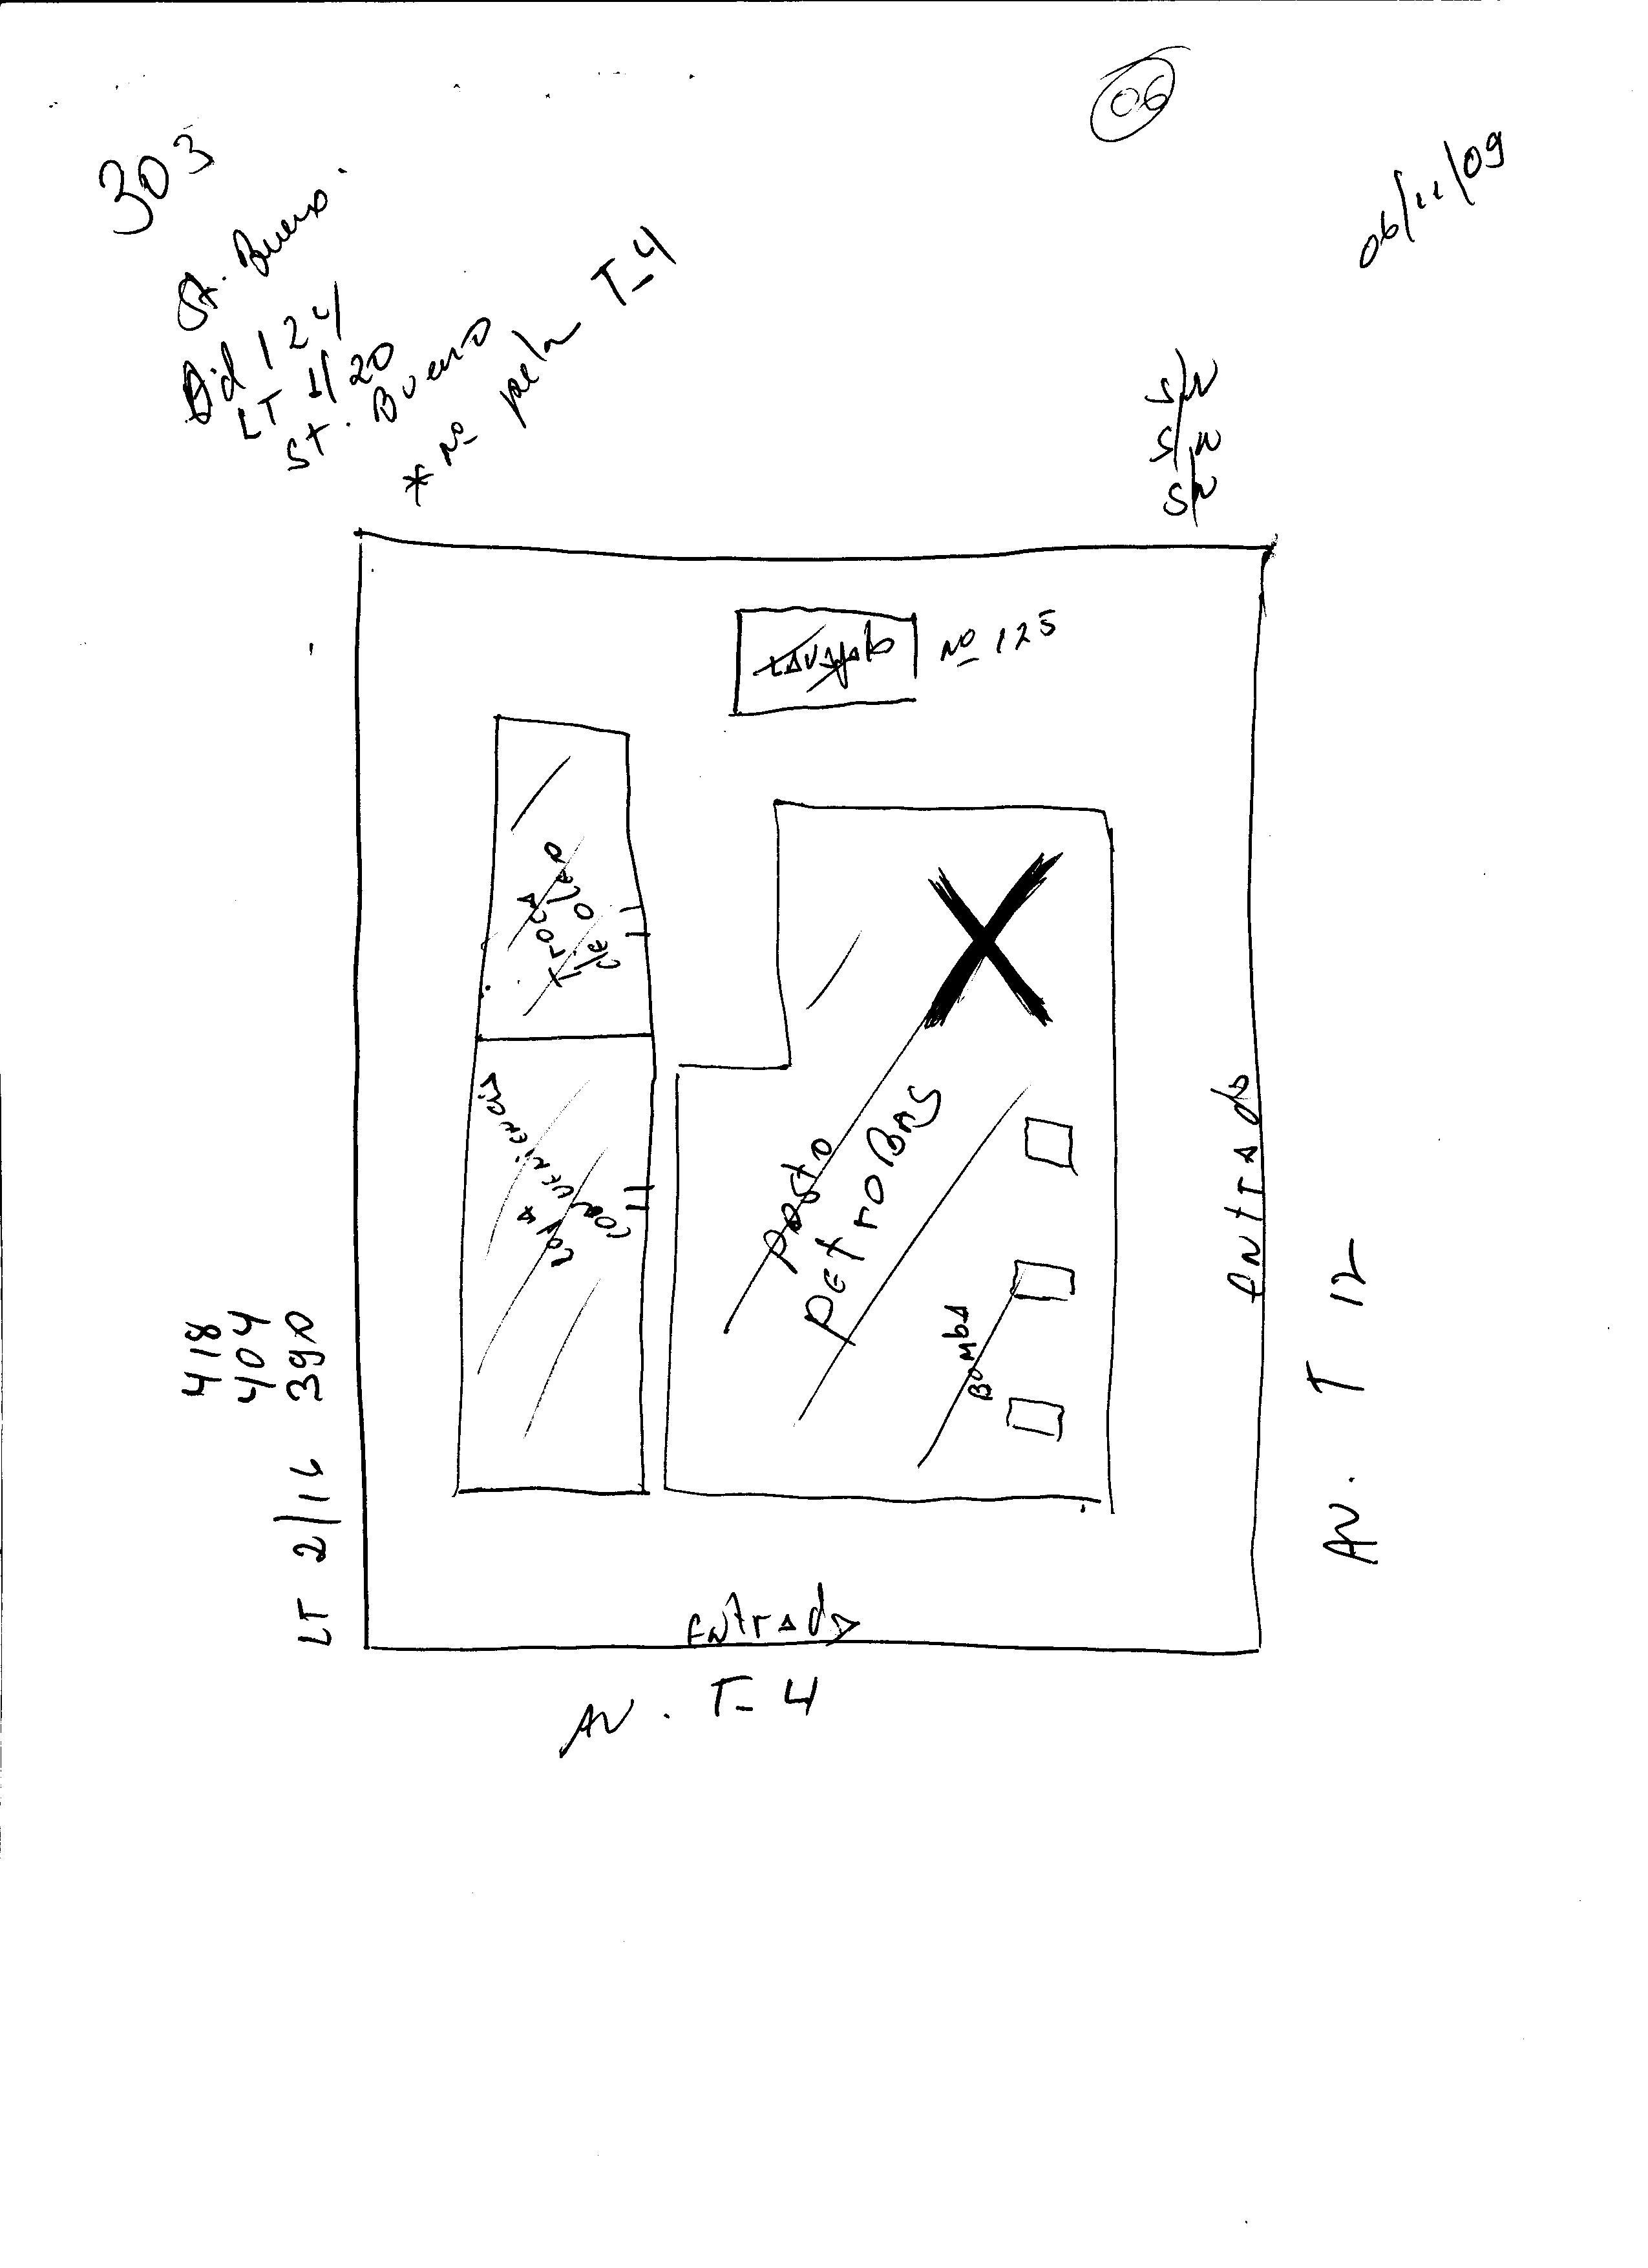 06
303
06/11/09
St. Bueno.
Qd 124
LT 1/20
St. Bueno
* Nº pela T-4
S/N
S/N
S/N
Lavajato
Nº 125
Troca
de OLEO
Loja
CONVENiENCiA
posto
PETROBAS
BOMbA
Entrada
Av. T 12
418
404
390
LT 2/16
Entrada
AV. T-4